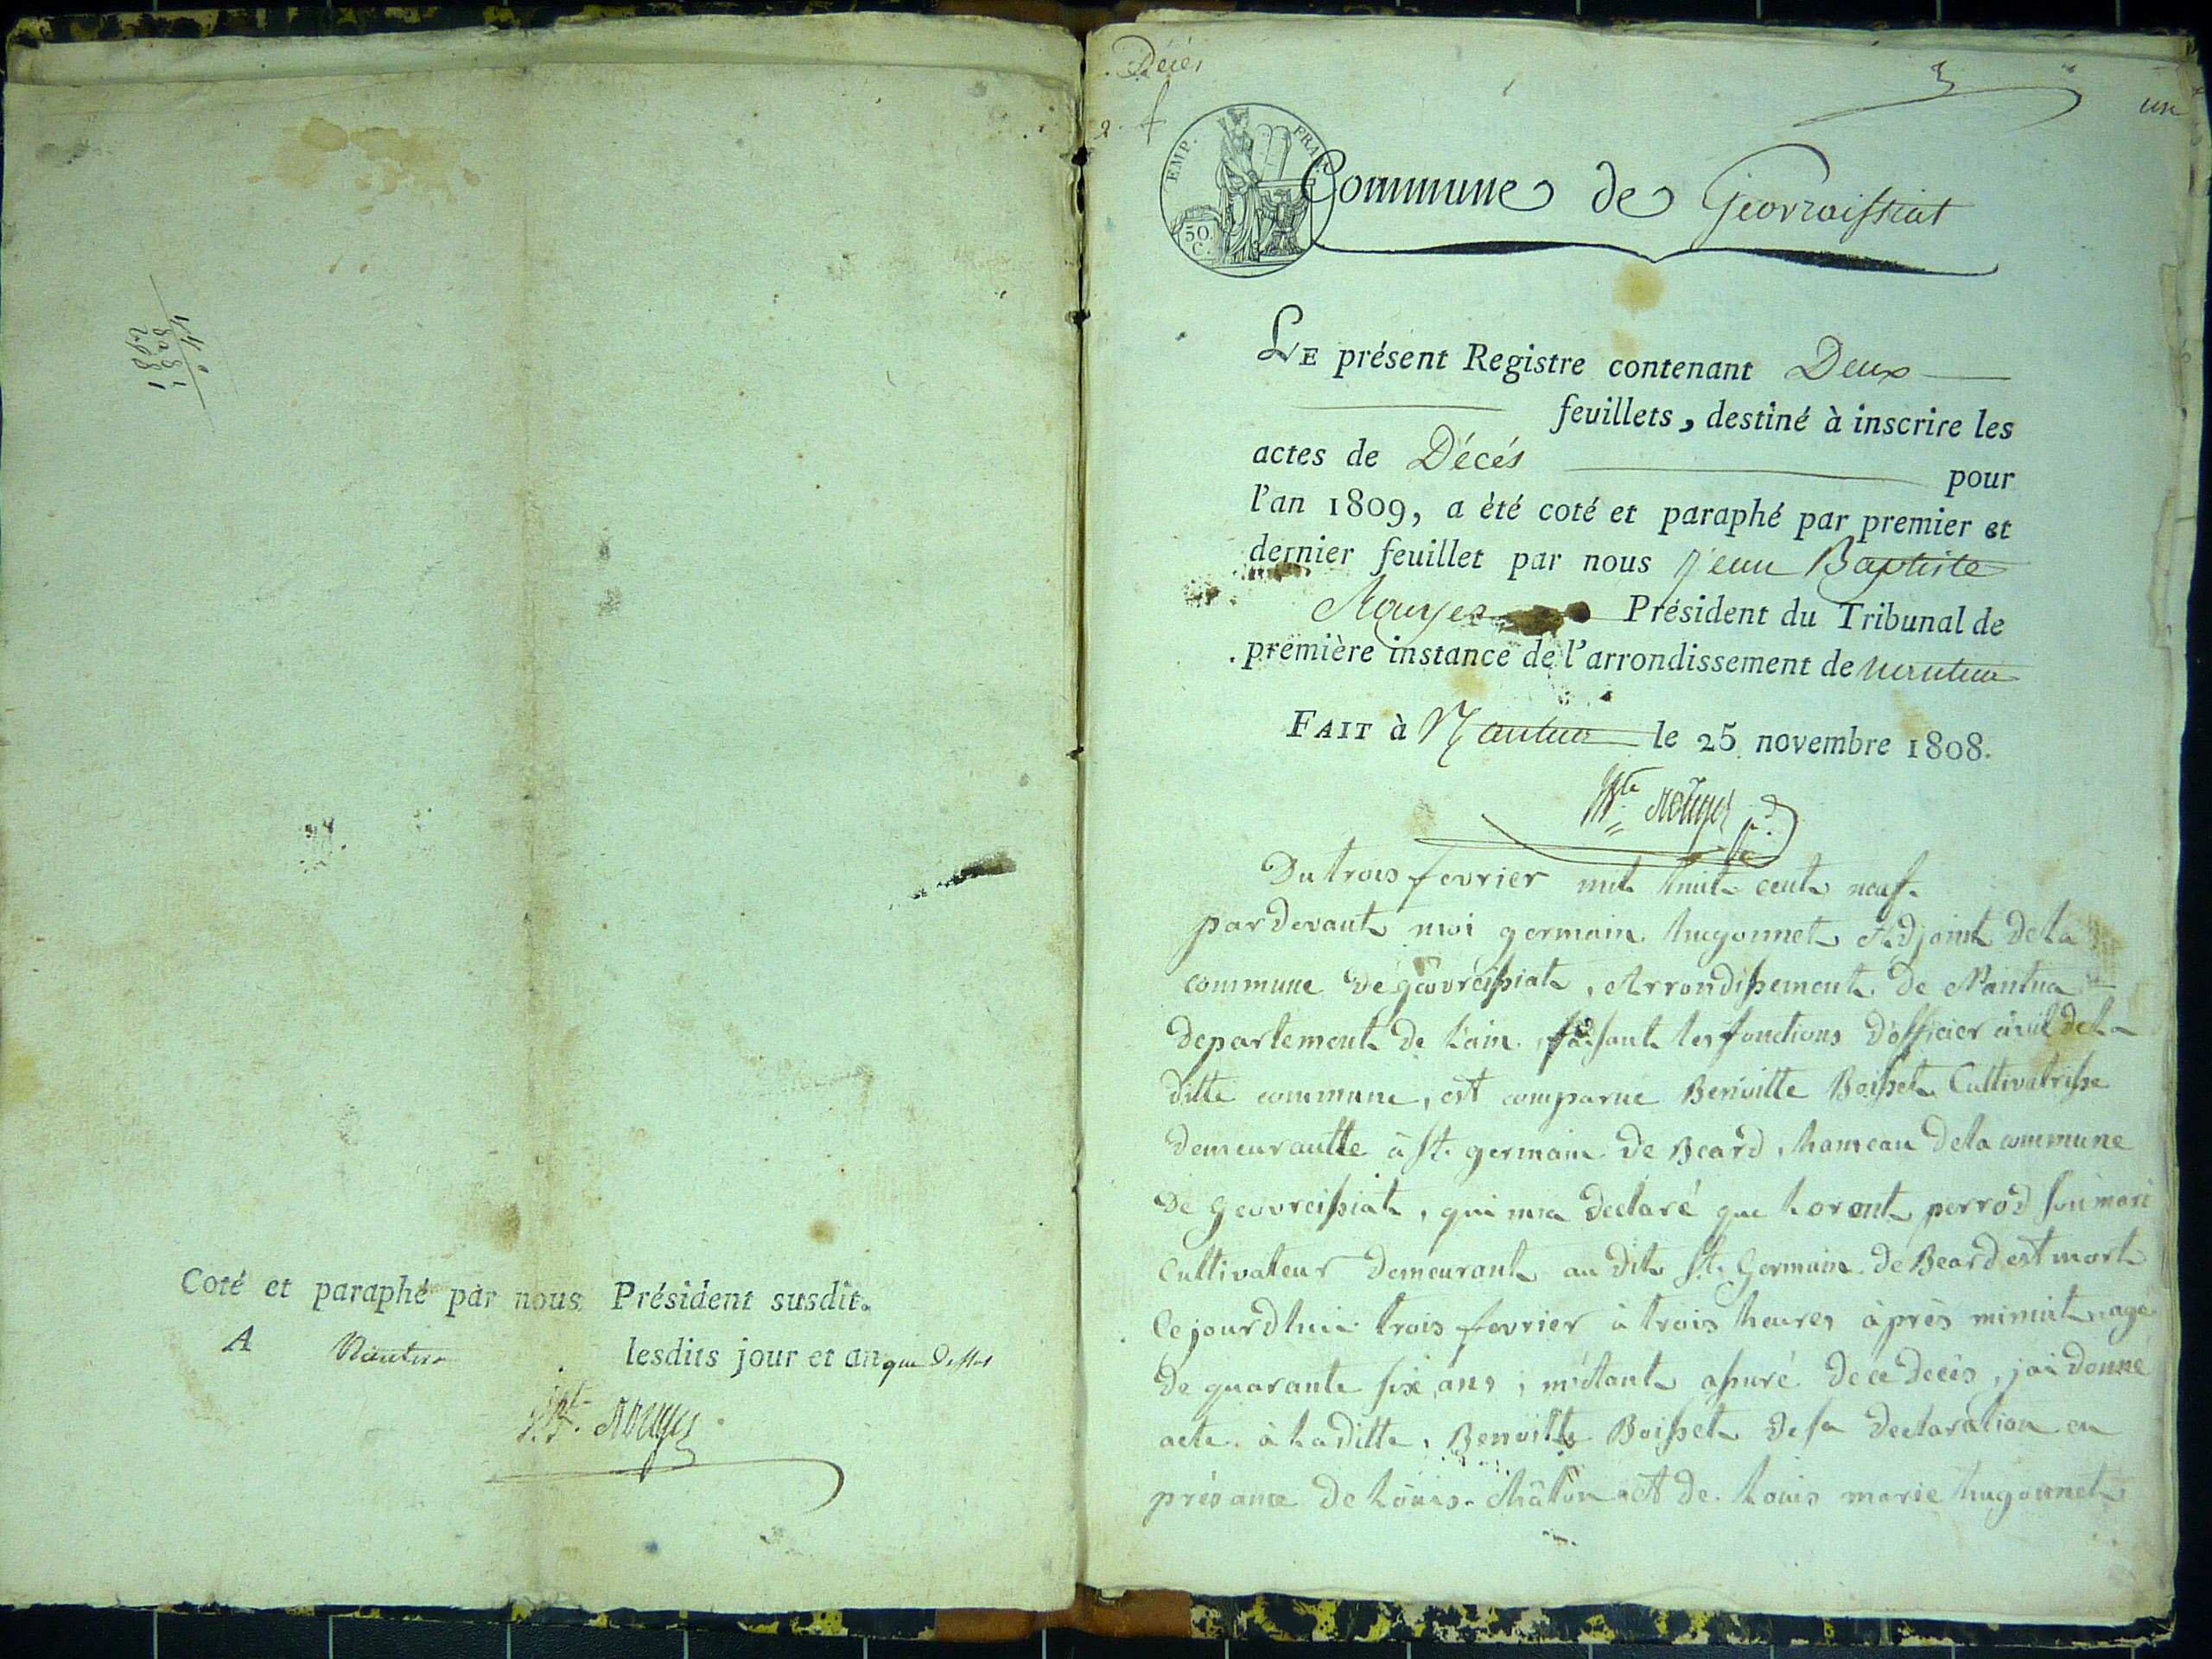 Coté et paraphé par nous Président susdit.
A Nantua lesdits jour et an que dessus
J. Bte. Rouyer
Décés
un
EMP. FRAN.
50 C.
Commune de Geovraissiat
LE présent Registre contenant Deux
feuillets, destiné à inscrire les
actes de Décés pour
l'an 1809, a èté coté et paraphé par premier et
dernier feuillet par nous Jean Baptiste
Rouyer Président du Tribunal de
première instance de l'arrondissement de nantua
FAIT à Nantua le 25 novembre 1808.
JBte Rouyer
Du trois fevrier mil huit cent neuf
par devant moi germain hugonnet Adjoint de la
commune de geovreissiat, Arrondissement de Nantua
departement de L'ain, faisant les fonctions d'officier civil de la
ditte commune, est comparue Benoitte Boisset Cultivatrisse
demeurantte à St. germain de Beard, hameau de la commune
de geovreissiat, qui ma declaré que Lorent perrod son mari
Cultivateur demeurant au dit St. Germain de Beard est mort
Cejourdhui trois fevrier à trois heures après minuit agé
de quarante six ans; m'étant assuré de ce decès, jai donné
acte à La ditte, Benoitte Boisset de sa declaration en
présance de Louis Châton et de Louis marie hugonnet